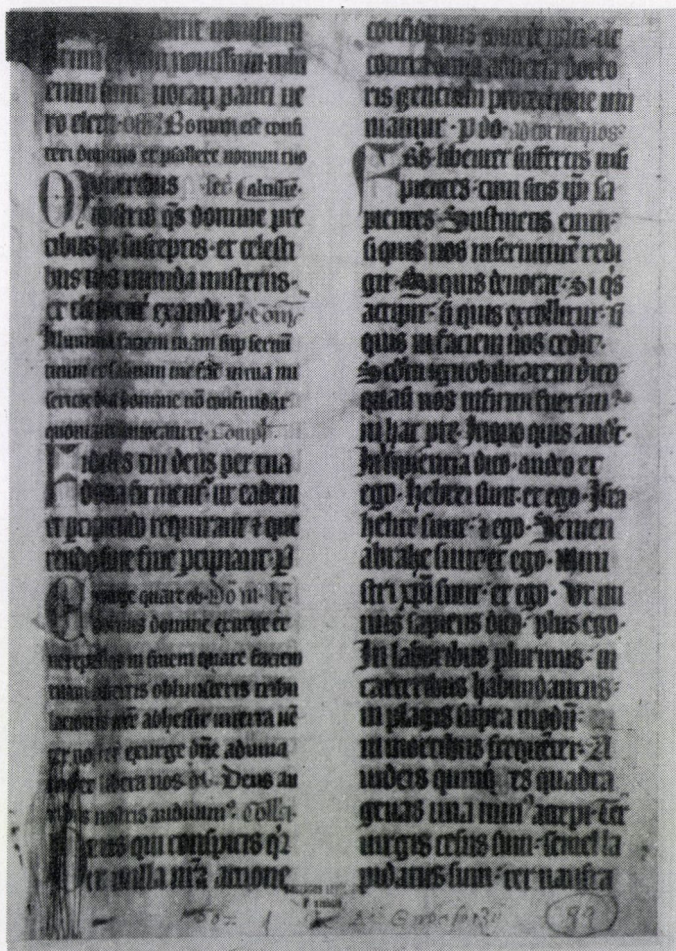 erunt nouissimi
primi et primi nouissimi· mlti
enim sunt uocati pauci ue
ro electi· Off Bonum est confi
teri domino et psallere nomini tuo
Muneribus sec altissie·
nostris qs domine pre
cibusq susceptis· et celesti
bus nos munda misteriis·
et clementer exaudi· P· Com
Illumina faciem tuam sup seruum
tuum et saluum me fac in tua mi
sericordia domine nō confundar
quoniam inuocaui te· Compl·
Fideles tui deus per tua
dona firment ut eadem
et pcipiendo requirant ⁊ que
rendo sine fine pcipiant· P
Exurge quare ob· Do in lx
dormis domine exurge et
ne repellas in finem quare faciem
tuam auertis obliuisceris tribu
lacionis nre adhesit in terra ue
ter noster exurge dne adiuua
nos et libera nos· Deus au
ribus nostris audiuim9· Colla
Deus qui conspicis qa
ex nulla nra actione
confidimus concede ut
contra omnia aduersa docto
ris gencium protectione mu
niamur· p do· ad corinthios
Frs libenter suffertis insi
pientes· cum sitis ipi sa
pientes· Sustinetis enim·
si quis nos in seruitutem redi
git· Si quis deuorat· Si qs
accipit· si quis extollitur· si
quis in faciem uos cedit·
Scdm ignobilitatem dico·
quasi nos infirmi fuerim9
in hac pte· In quo quis audet·
In insipiencia dico· audeo et
ego· Hebrei sunt· et ego· Isra
helite sunt· ⁊ ego· Semen
abrahe sunt et ego· Mini
stri xpi sunt· et ego· Vt mi
nus sapiens dico· plus ego·
In laboribus plurimis· in
carceribus habundancius·
in plagis supra modū·
in mortibus frequēter· A
iudeis quinquies quadra
genas una min9 accepi· Ter
uirgis cesus sum· semel la
pidatus sum· ter naufra
99